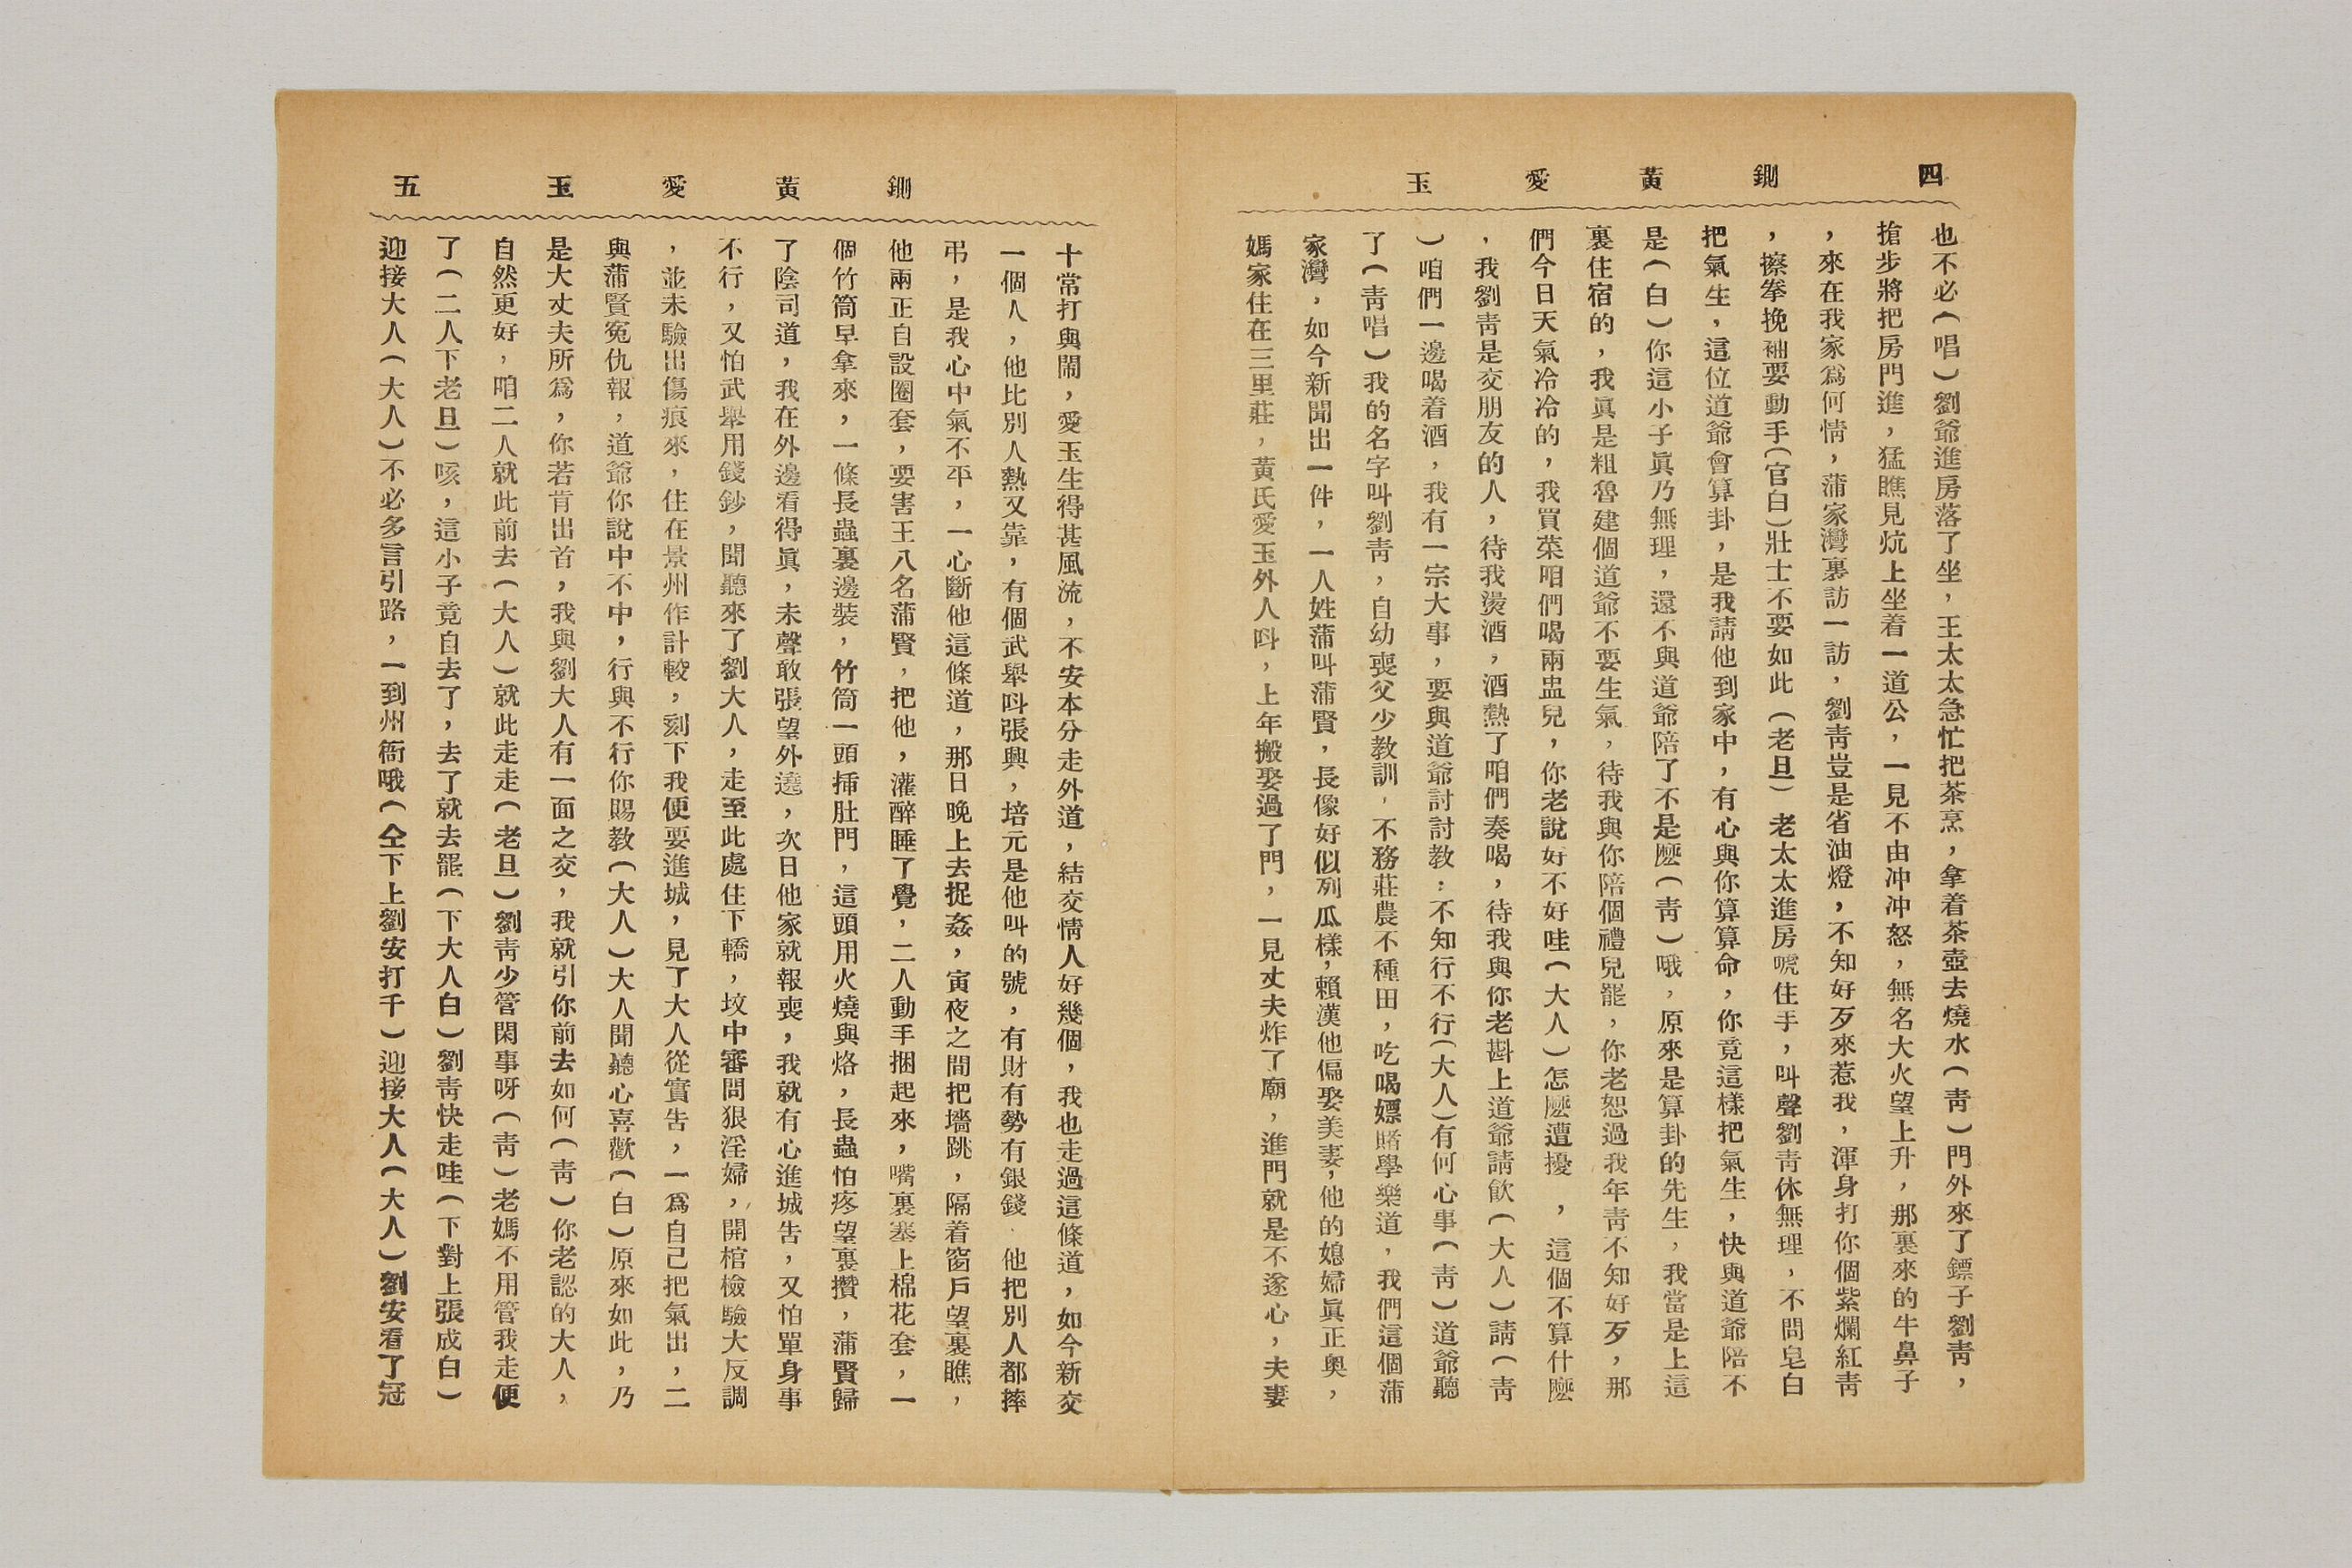 四 鍘黃愛玉
也不必(唱)劉爺進房落了坐，王太太急忙把茶烹，拿着茶壺去燒水(靑)門外來了鏢子劉靑，
搶步將把房門進，猛瞧見炕上坐着一道公，一見不由冲冲怒，無名大火望上升，那裏來的牛鼻子
，來在我家爲何情，蒲家灣裏訪一訪，劉靑豈是省油燈，不知好歹來惹我，渾身打你個紫爛紅靑
，擦拳挽袖要動手(官白)壯士不要如此(老旦)老太太進房唬住手，叫聲劉靑休無理，不問皂白
把氣生，這位道爺會算卦，是我請他到家中，有心與你算算命，你竟這樣把氣生，快與道爺陪不
是(白)你這小子眞乃無理，還不與道爺陪了不是麽(靑)哦，原來是算卦的先生，我當是上這
裏住宿的，我眞是粗魯建個道爺不要生氣，待我與你陪個禮兒罷，你老恕過我年靑不知好歹，那
們今日天氣冷冷的，我買菜咱們喝兩盅兒，你老說好不好哇(大人)怎麽遭擾，這個不算什麽
，我劉靑是交朋友的人，待我燙酒，酒熱了咱們奏喝，待我與你老斟上道爺請飮(大人)請(靑
)咱們一邊喝着酒，我有一宗大事，要與道爺討討教：不知行不行(大人)有何心事(靑)道爺聽
了(靑唱)我的名字叫劉靑，自幼喪父少教訓，不務莊農不種田，吃喝嫖賭學樂道，我們這個蒲
家灣，如今新聞出一件，一人姓蒲叫蒲賢，長像好似列瓜樣，賴漢他偏娶美妻，他的媳婦眞正奥，
媽家住在三里莊，黃氏愛玉外人呌，上年搬娶過了門，一見丈夫炸了廟，進門就是不遂心，夫妻
鍘黃愛玉 五
十常打與鬧，愛玉生得甚風流，不安本分走外道，結交情人好幾個，我也走過這條道，如今新交
一個人，他比別人熱又靠，有個武舉呌張興，培元是他叫的號，有財有勢有銀錢，他把別人都摔
弔，是我心中氣不平，一心斷他這條道，那日晚上去捉姦，寅夜之間把墻跳，隔着窗戶望裏瞧，
他兩正自設圈套，要害王八名蒲賢，把他，灌醉睡了覺，二人動手捆起來，嘴裏塞上棉花套，一
個竹筒早拿來，一條長蟲裏邊裝，竹筒一頭揷肚門，這頭用火燒與烙，長蟲怕疼望裏攢，蒲賢歸
了陰司道，我在外邊看得眞，未聲敢張望外遶，次日他家就報喪，我就有心進城告，又怕單身事
不行，又怕武舉用錢鈔，聞聽來了劉大人，走至此處住下轎，坟中審問狠淫婦，開棺檢驗大反調
，並未驗出傷痕來，住在景州作計較，刻下我便要進城，見了大人從實告，一爲自己把氣出，二
與蒲賢冤仇報，道爺你說中不中，行與不行你賜教(大人)大人聞聽心喜歡(白)原來如此，乃
是大丈夫所爲，你若肯出首，我與劉大人有一面之交，我就引你前去如何(靑)你老認的大人，
自然更好，咱二人就此前去(大人)就此走走(老旦)劉靑少管閑事呀(靑)老媽不用管我走便
了(二人下老旦)咳，這小子竟自去了，去了就去罷(下大人白)劉靑快走哇(下對上張成白)
迎接大人(大人)不必多言引路，一到州衙哦(仝下上劉安打千)迎接大人(大人)劉安看了冠